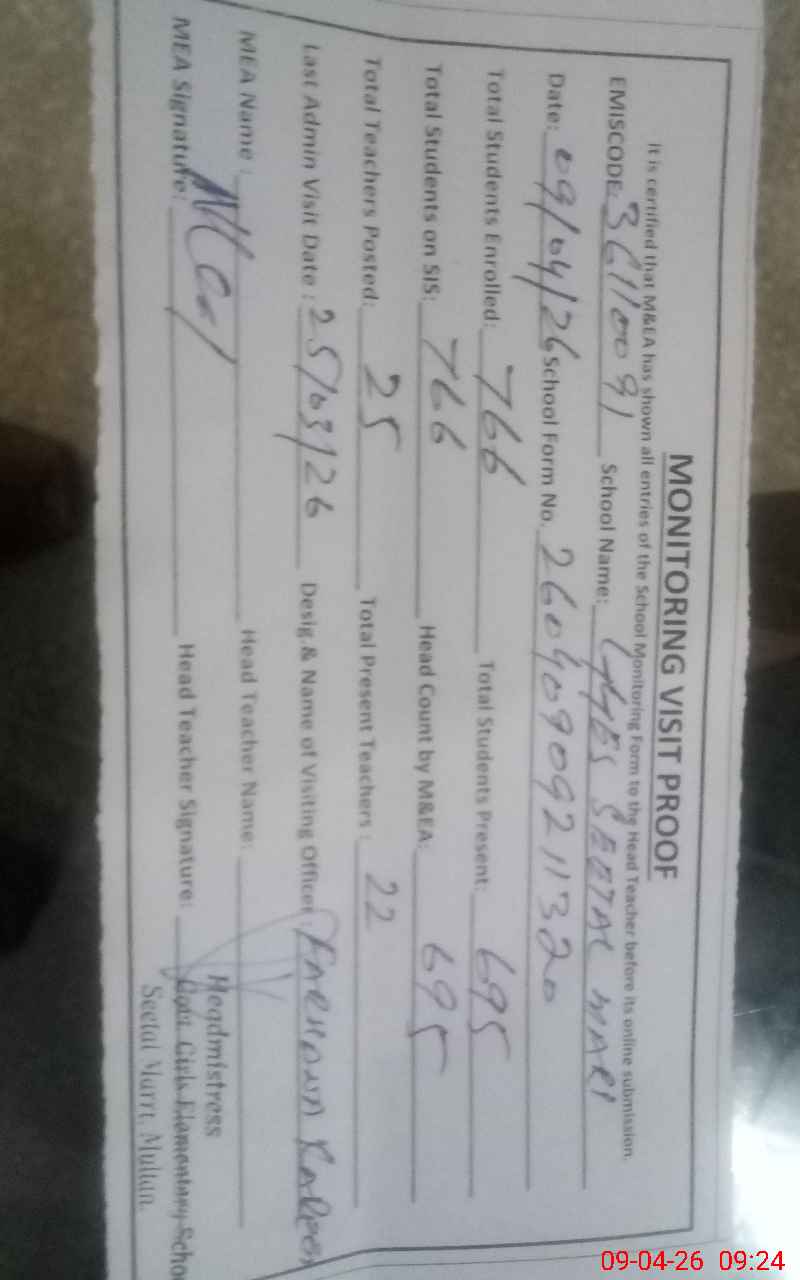 MONITORING VISIT PROOF
It is certified that M&EA has shown all entries of the School Monitoring Form to the Head Teacher before its online submission.
EMISCODE: 36110091 School Name: GGES SEETAL MARI
Date: 09/04/26 School Form No. 26040909211320
Total Students Enrolled: 766 Total Students Present: 695
Total Students on SIS: 766 Head Count by M&EA: 695
Total Teachers Posted: 25 Total Present Teachers : 22
Last Admin Visit Date : 25/03/26 Desig.& Name of Visiting Officer: FARHANA
MEA Name : Head Teacher Name:
MEA Signature: Head Teacher Signature:
Headmistress
Govt. Girls Elementary Scho
Seetal Marri, Multan.
09-04-26 09:24